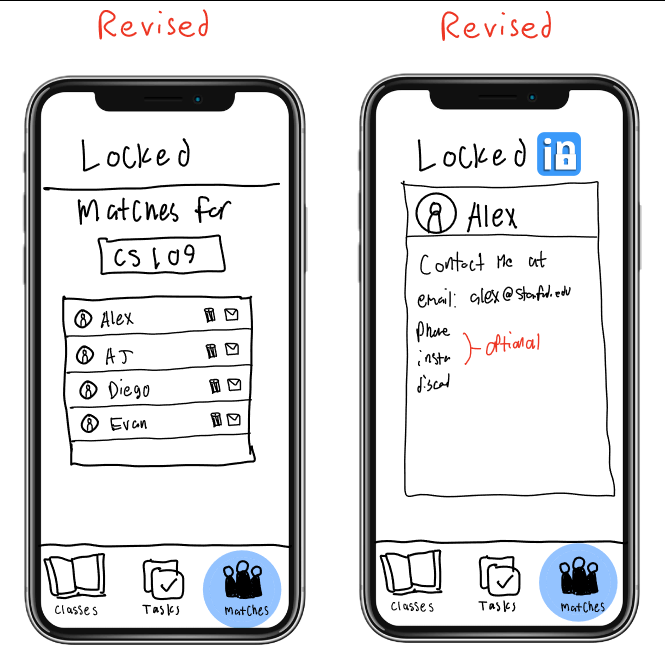 Revised
Locked
Matches for
CS 109
Alex
AJ
Diego
Evan
Classes
Tasks
Matches
Revised
Locked in
Alex
Contact me at
email: alex@stanford.edu
Phone
insta
optional
discord
Classes
Tasks
Matches